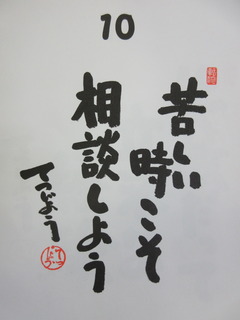 10
苦しい
時こそ
相談しよう
てつどう